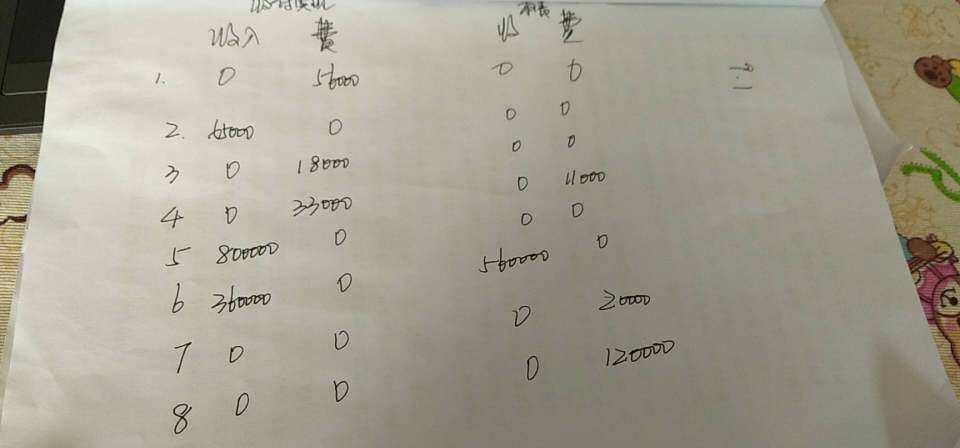 收付实现 权责
收入 费 收 费
1. 0 56000 0 0
2. 65000 0 0 0
3 0 18000 0 0
4 0 33000 0 11000
5 800000 0 0 0
6 360000 0 560000 0
7 0 0 0 20000
8 0 0 0 120000